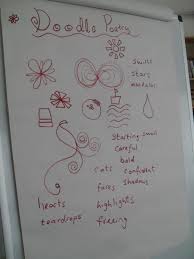 Doodle Poetry
Swirls
Stars
mandalas
Starting small
careful
bold
cats confident
faces shadows
hearts highlights
teardrops freeing